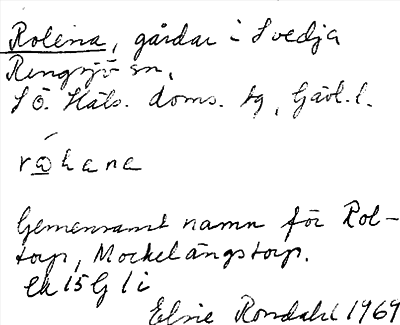 Rolena, gårdar i Svedja
Rengsjö sn,
S Ö. Häls. doms. tg, Gävl. l.
råhana
Gemensamt namn för Rol-
torp, Mockelängstorp.
Ek 15 G 1 i
Elsie Rondahl 1969